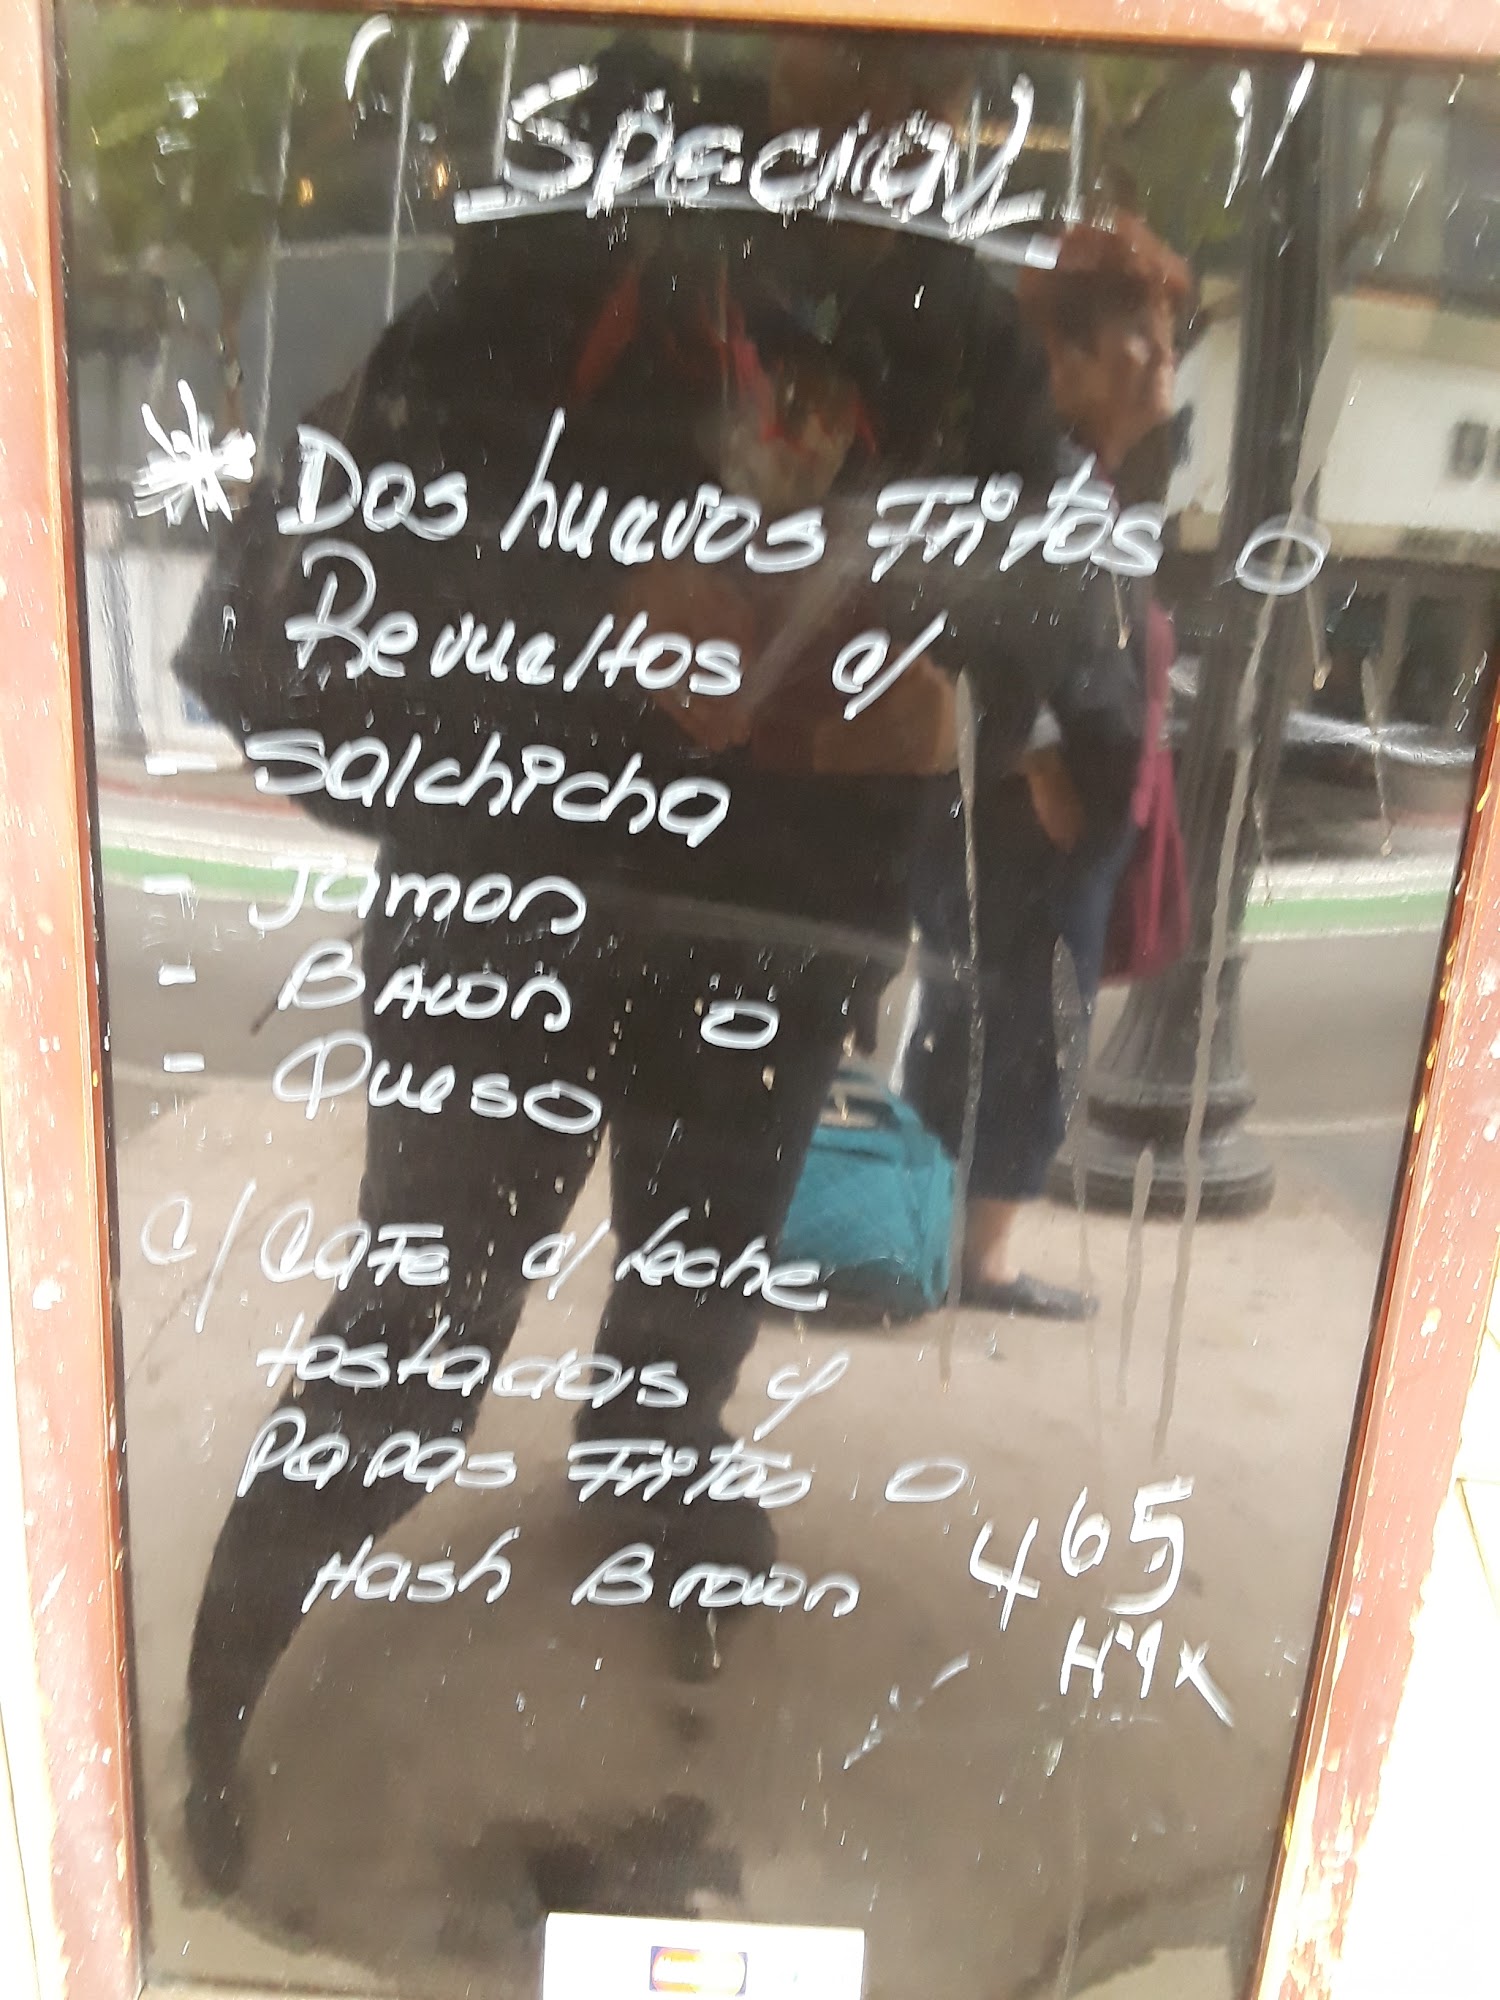 "Special"
* Dos huevos Fritos o
Revueltos c/
- Salchicha
- Jamon
- Bacon o
- Queso
c/ Cafe c/ Leche
tostadas y
Papas Fritas o
Hash Brown
4 65
+ Tax